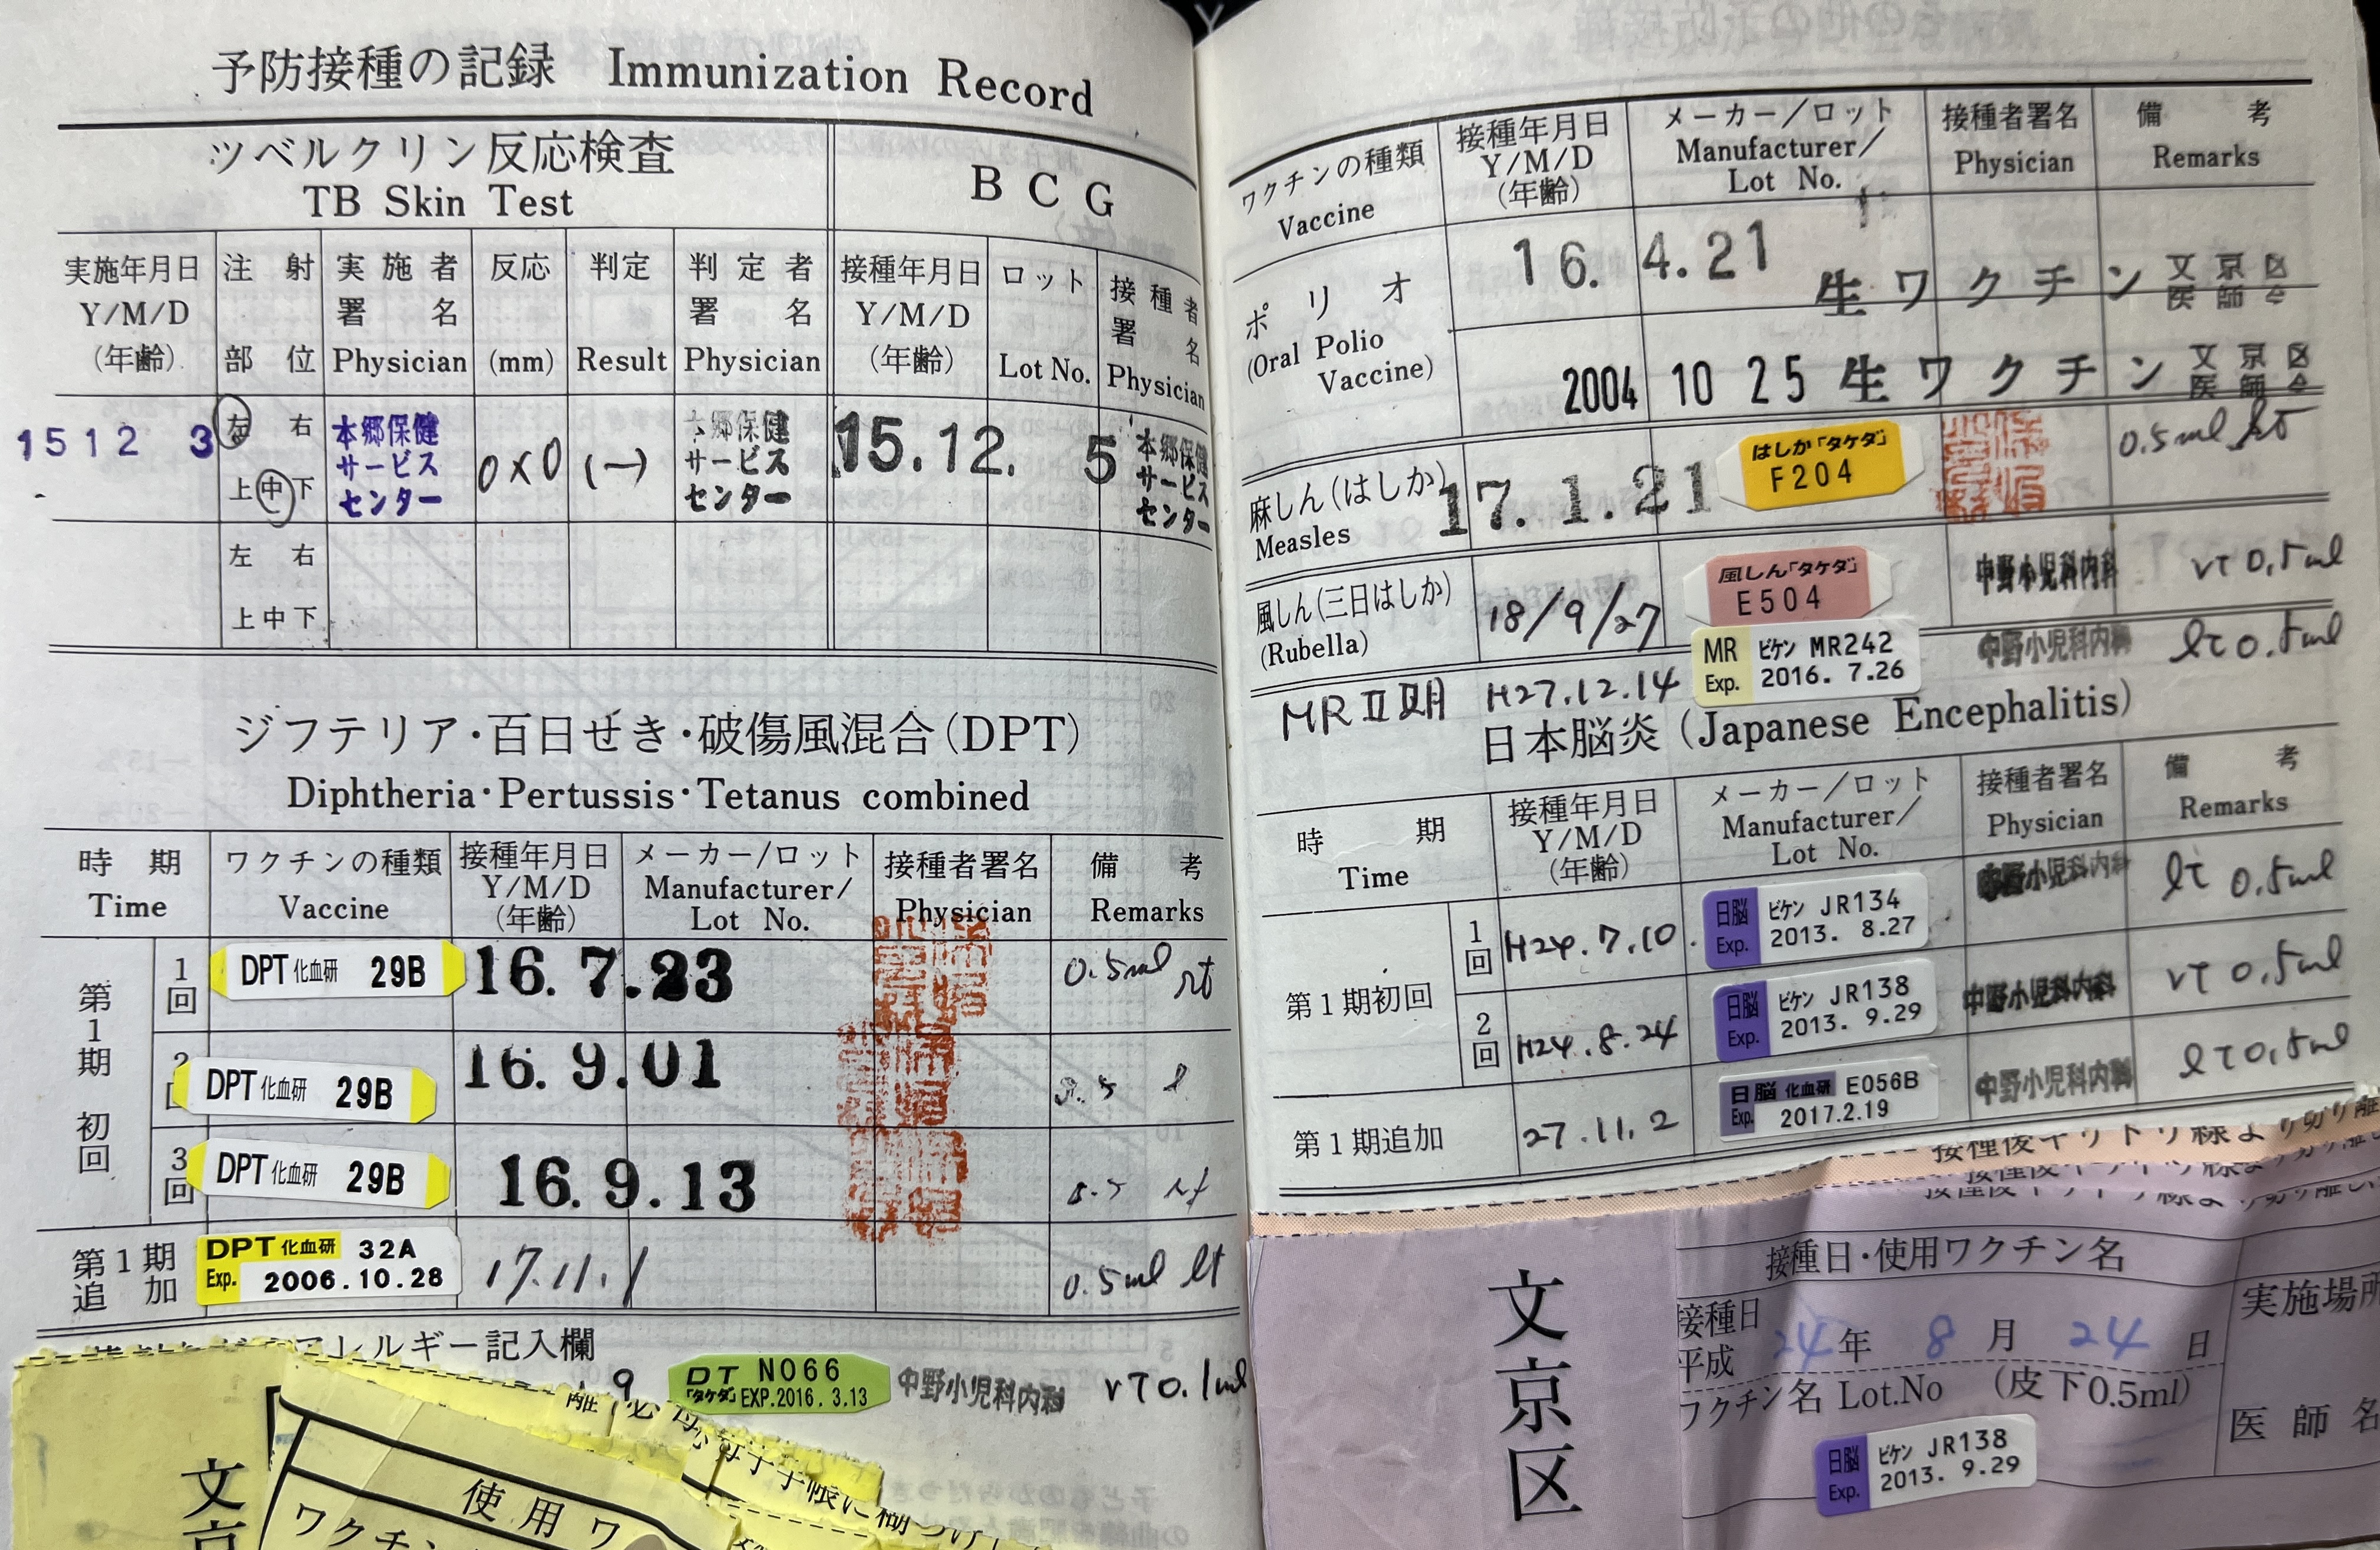 予防接種の記録 Immunization Record
ツベルクリン反応検査
TB Skin Test
BCG
実施年月日
Y/M/D
(年齢)
注射
部位
実施者
署名
Physician
反応
(mm)
判定
Result
判定者
署名
Physician
接種年月日
Y/M/D
(年齢)
ロット
Lot No.
接種者
署名
Physician
15 12 3
左 右
上 中 下
本郷保健
サービス
センター
0×0
(-)
本郷保健
サービス
センター
15.12. 5
本郷保健
サービス
センター
左 右
上 中 下
ジフテリア・百日せき・破傷風混合(DPT)
Diphtheria・Pertussis・Tetanus combined
時期
Time
ワクチンの種類
Vaccine
接種年月日
Y/M/D
(年齢)
メーカー/ロット
Manufacturer/
Lot No.
接種者署名
Physician
備考
Remarks
第1期初回
1回
DPT 化血研 29B
16. 7.23
0.5ml rt
2
DPT 化血研 29B
16. 9.01
3回
DPT 化血研 29B
16.9.13
第1期
追加
DPT 化血研 32A
Exp. 2006.10.28
17.11.1
0.5ml lt
アレルギー記入欄
9
DT N066
「タケダ」EXP.2016. 3.13
中野小児科内科
rt 0.1ml
文京
使用ワ
ワクチン
母子手帳に糊づけ
ワクチンの種類
Vaccine
接種年月日
Y/M/D
(年齢)
メーカー/ロット
Manufacturer/
Lot No.
接種者署名
Physician
備考
Remarks
ポリオ
(Oral Polio
Vaccine)
16. 4.21
生ワクチン 文京区
医師会
2004 10 25 生ワクチン 文京区
医師会
麻しん(はしか)
Measles
17. 1.21
はしか「タケダ」
F204
0.5ml rt
風しん(三日はしか)
(Rubella)
18/9/27
風しん「タケダ」
E504
中野小児科内科
rt 0.5ml
MRⅡ期
H27.12.14
MR ビケン MR242
Exp. 2016. 7.26
中野小児科内科
lt 0.5ml
日本脳炎(Japanese Encephalitis)
時期
Time
接種年月日
Y/M/D
(年齢)
メーカー/ロット
Manufacturer/
Lot No.
接種者署名
Physician
備考
Remarks
第1期初回
1回
H24.7.10.
日脳 ビケン JR134
Exp. 2013. 8.27
中野小児科内科
lt 0.5ml
2回
H24.8.24
日脳 ビケン JR138
Exp. 2013. 9.29
中野小児科内科
rt 0.5ml
第1期追加
27.11.2
日脳 化血研 E056B
Exp. 2017.2.19
中野小児科内科
lt 0.5ml
接種後キリトリ線より切り離
文京区
接種日・使用ワクチン名
接種日
平成 24年 8月 24日
ワクチン名 Lot.No (皮下0.5ml)
日脳 ビケン JR138
Exp. 2013. 9.29
実施場所
医師名